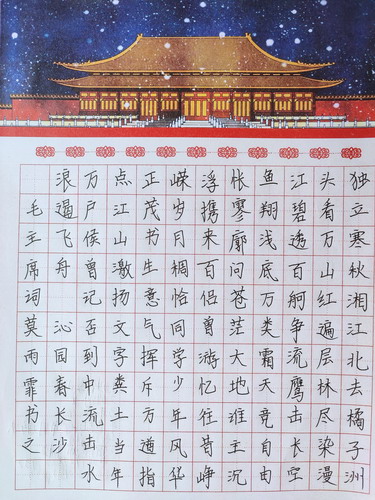 独立寒秋湘江北去橘子洲
头看万山红遍层林尽染漫
江碧透百舸争流鹰击长空
鱼翔浅底万类霜天竞自由
怅寥廓问苍茫大地谁主沉
浮携来百侣曾游忆往昔峥
嵘岁月稠恰同学少年风华
正茂书生意气挥斥方遒指
点江山激扬文字粪土当年
万户侯曾记否到中流击水
浪遏飞舟 沁园春长沙
毛主席词莫雨霏书之